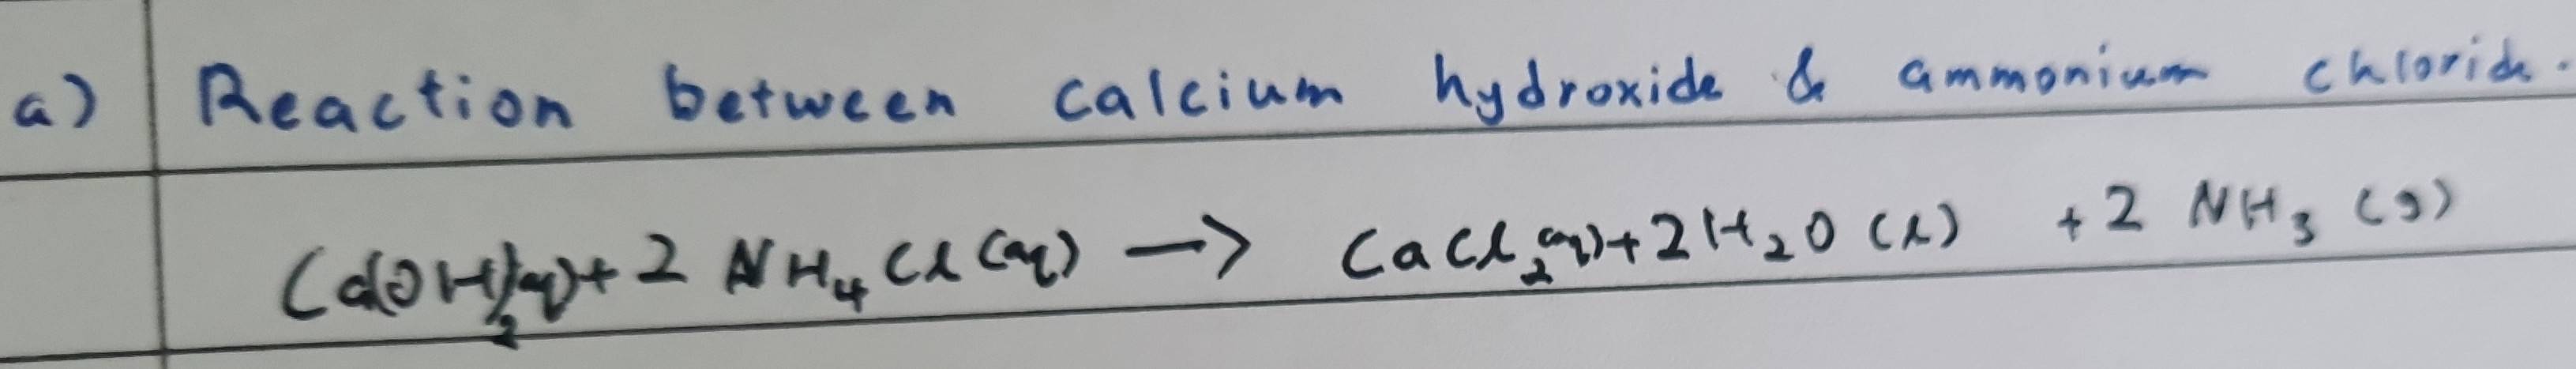 a) Reaction between calcium hydroxide & ammonium chloride.
Ca(OH)₂(aq) + 2 NH₄Cl(aq) → CaCl₂(aq) + 2H₂O(l) + 2 NH₃(g)